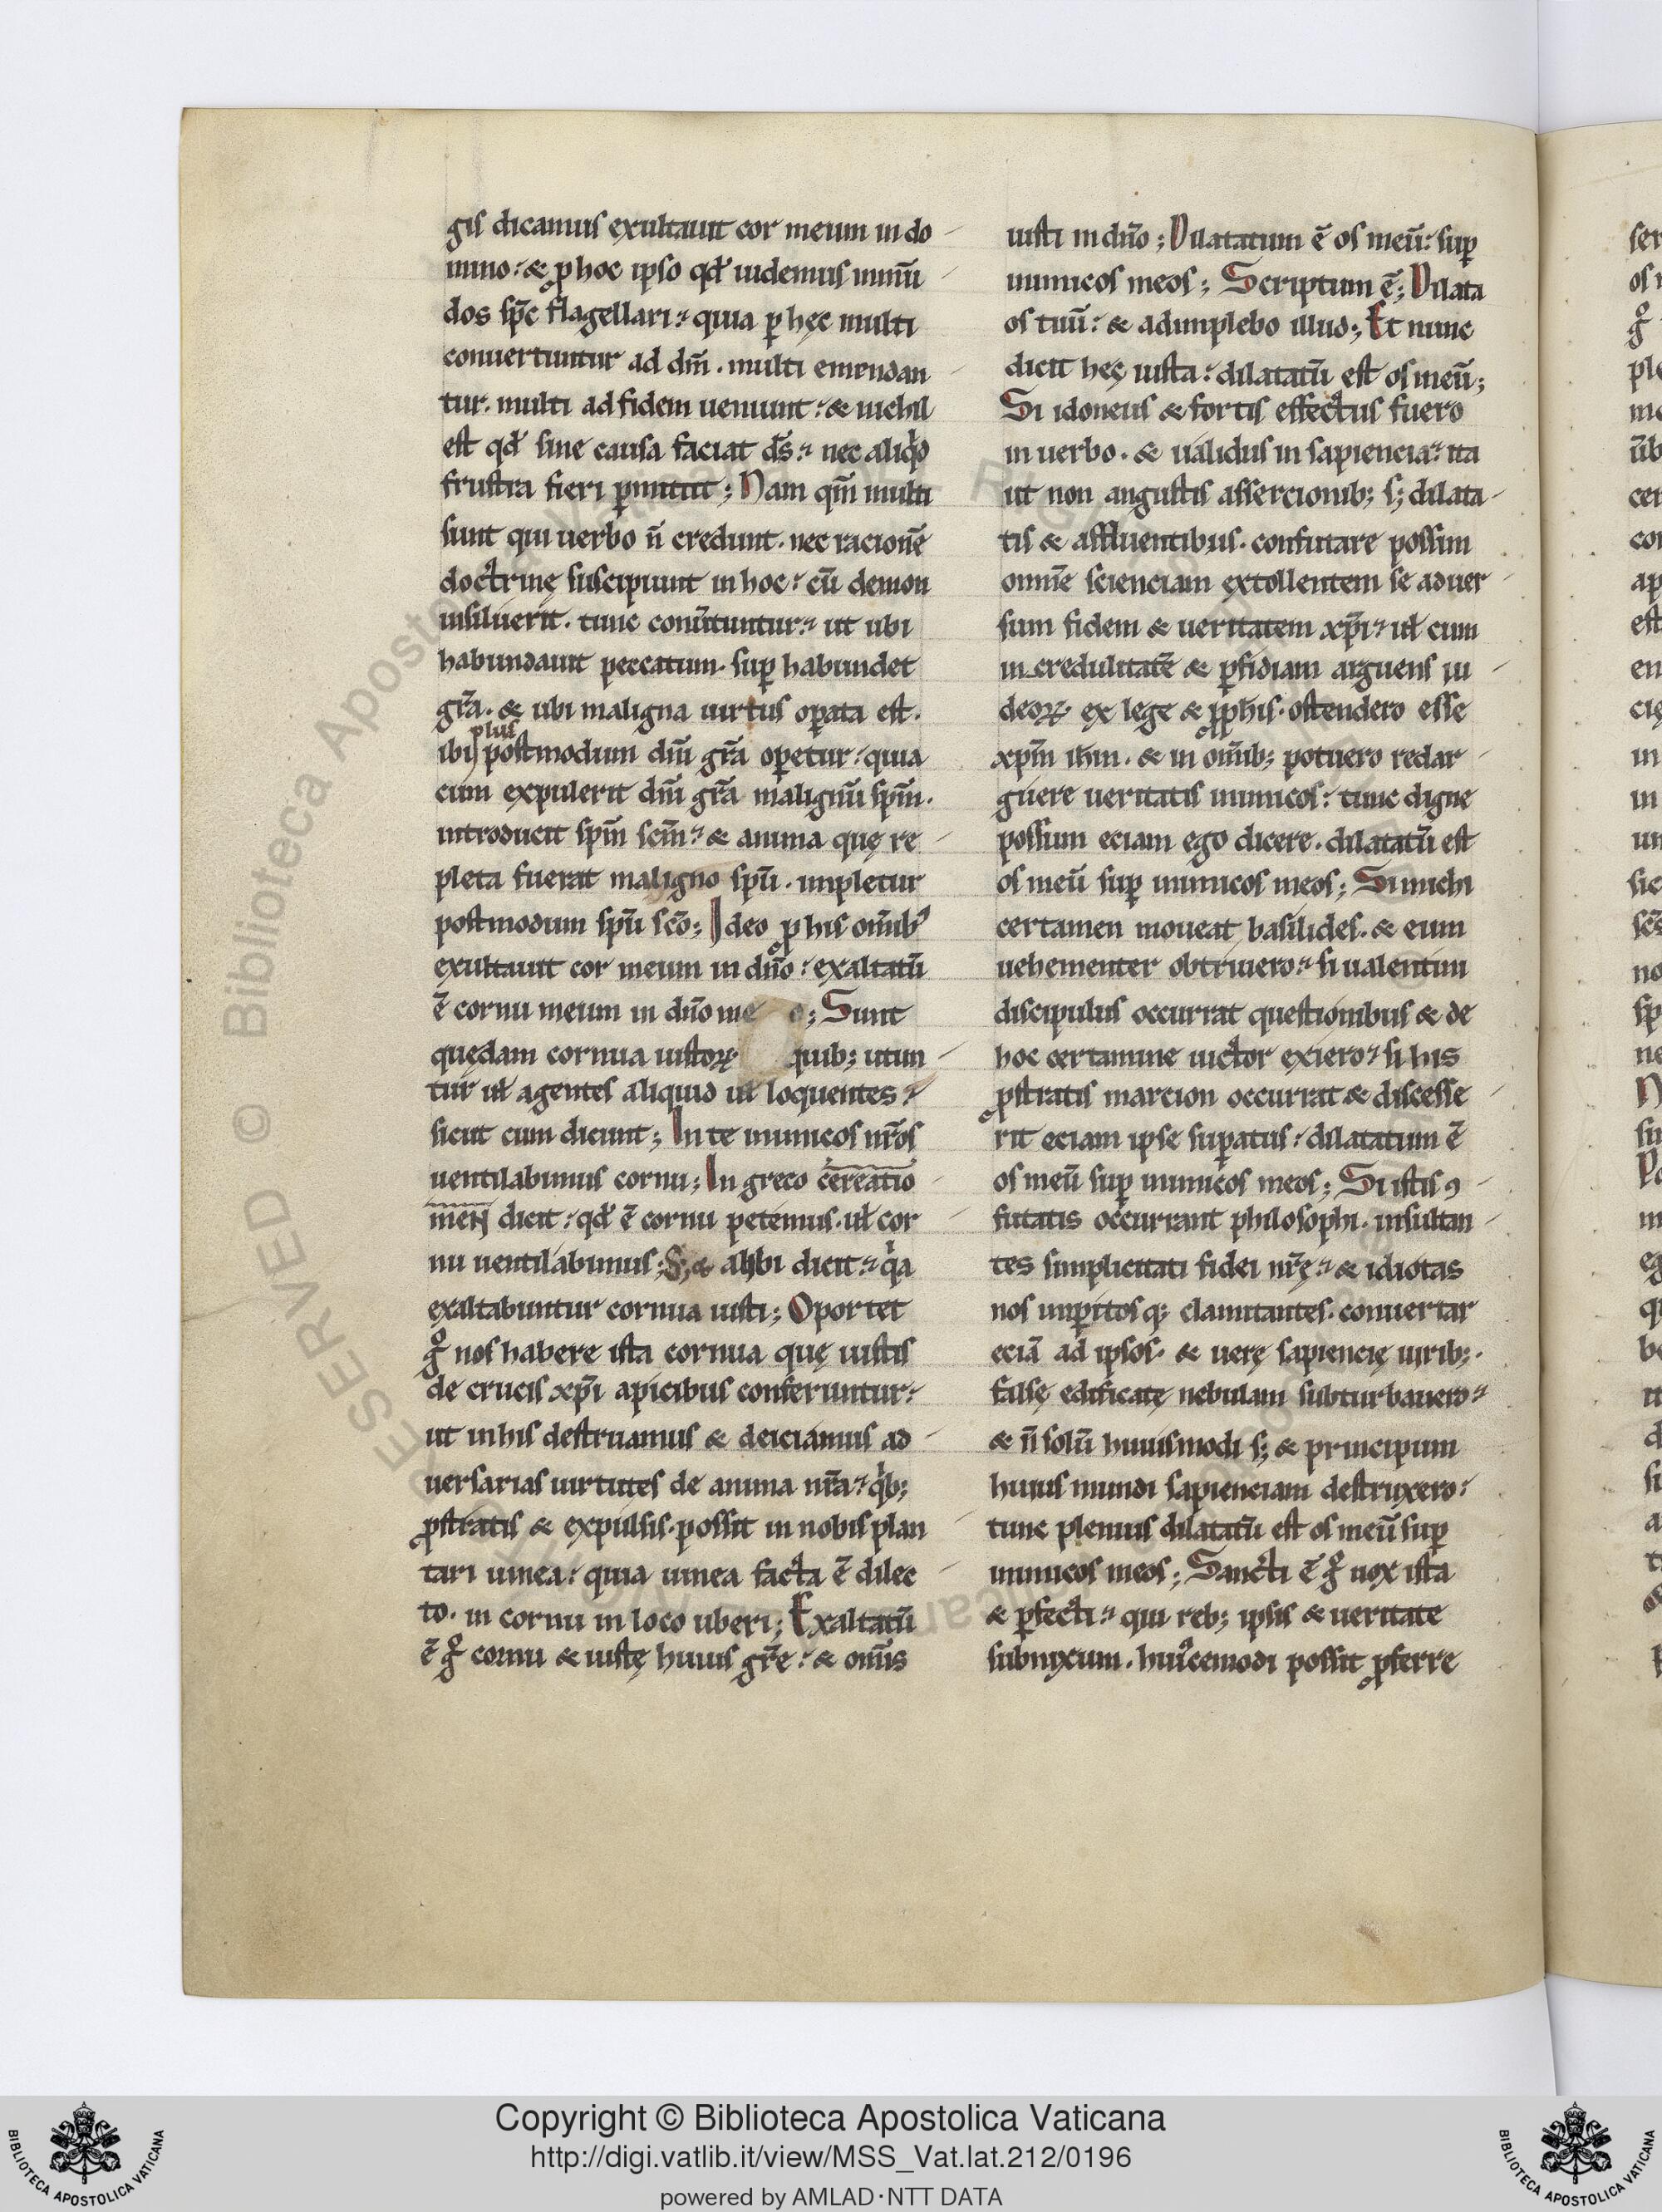 gis dicamus exultauit cor meum in do
mino. & ꝓ hoc ipso qđ uidemus inmū
dos sp̄c flagellari. quia ꝑ hęc multi
conuertuntur ad dm̄. multi emendan
tur. multi ad fidem ueniunt. & nichil
est qđ sine causa faciat d̄s. nec aliqͥd
frustra fieri ꝑmittit; Nam qm̄ multi
sunt qui uerbo n̄ credunt. nec racionē
doctrinę suscipiunt in hoc. cū demon
insiluerit. tunc conu̅tuntur. ut ubi
habundauit peccatum. suꝑ habundet
gr̄a. & ubi maligna uirtus oꝑata est.
plus
ibi postmodum dn̄i gr̄a oꝑetur. quia
cum expulerit dn̄i gr̄a malignū sp̄m.
introducit sp̄m scm̄. & anima quę re
pleta fuerat maligno sp̄u. impletur
postmodum sp̄u sc̄o; Ideo ꝓ his om̄ibꝰ
exultauit cor meum in dn̄o. exaltatū
ē cornu meum in dn̄o me o; Sunt
quędam cornua iustoꝝ quib; utun
tur uł agentes aliquid uł loquentes.
sicut cum dicunt; In te inimicos nr̄os
uentilabimus cornu; In greco cereatio
men dicit. qđ ē cornu petemus. uł cor
nu uentilabimus; S; & alibi dicit. qͥa
exaltabuntur cornua iusti; Oportet
gͦ nos habere ista cornua quę iustis
de crucis xp̄i apicibus conferuntur.
ut in his destruamus & deiciamus ad
uersarias uirtutes de anima nr̄a. qͥb;
ꝓstratis & expulsis. possit in nobis plan
tari uinea. quia uinea facta ē dilec
to. in cornu in loco uberi; Exaltatū
ē gͦ cornu & iustę huius gr̄e. & om̄is
iusti in dn̄o; Dilatatum ē os meū. suꝑ
inimicos meos; Scriptum ē; Dilata
os tuū. & adimplebo illud; Et nunc
dicit hęc iusta. dilatatū est os meū;
Si idoneus & fortis effectus fuero
in uerbo. & ualidus in sapiencia. ita
ut non angustis assercionib; s; dilata
tis & affluentibus. confutare possim
omnē scienciam extollentem se aduer
sum fidem & ueritatem xp̄i. uł cum
incredulitatē & ꝑfidiam arguens iu
deoꝝ. ex lege & ꝓph̄is. ostendero esse
xp̄m ih̄m. & in om̄ib; potuero redar
guere ueritatis inimicos. tunc digne
possum eciam ego dicere. dilatatū est
os meū suꝑ inimicos meos; Si michi
certamen moueat basilides. & eum
uehementer obtriuero. si ualentini
discipulus occurrat questionibus & de
hoc certamine uictor exiero. si his
ꝓstratis marcion occurrat & discesse
rit eciam ipse suꝑatus. dilatatum ē
os meū suꝑ inimicos meos; Si istis ꝯ
futatis occurrant philosophi. insultan
tes simplicitati fidei nr̄ę. & idiotas
nos imꝑitos q; clamitantes. conuertar
eciā ad ipsos. & uerę sapiencię uirib;.
falsę edificatę nebulam subturbauero.
& n̄ solū huiusmodi s; & principum
huius mundi sapienciam destruxero.
tunc plenius dilatatū est os meū suꝑ
inimicos meos; Sancti ē gͦ uox ista
& ꝑfecti. qui reb; ipsis & ueritate
subnixum. huiꝰcemodi possit ꝓferre
Copyright © Biblioteca Apostolica Vaticana
http://digi.vatlib.it/view/MSS_Vat.lat.212/0196
powered by AMLAD·NTT DATA